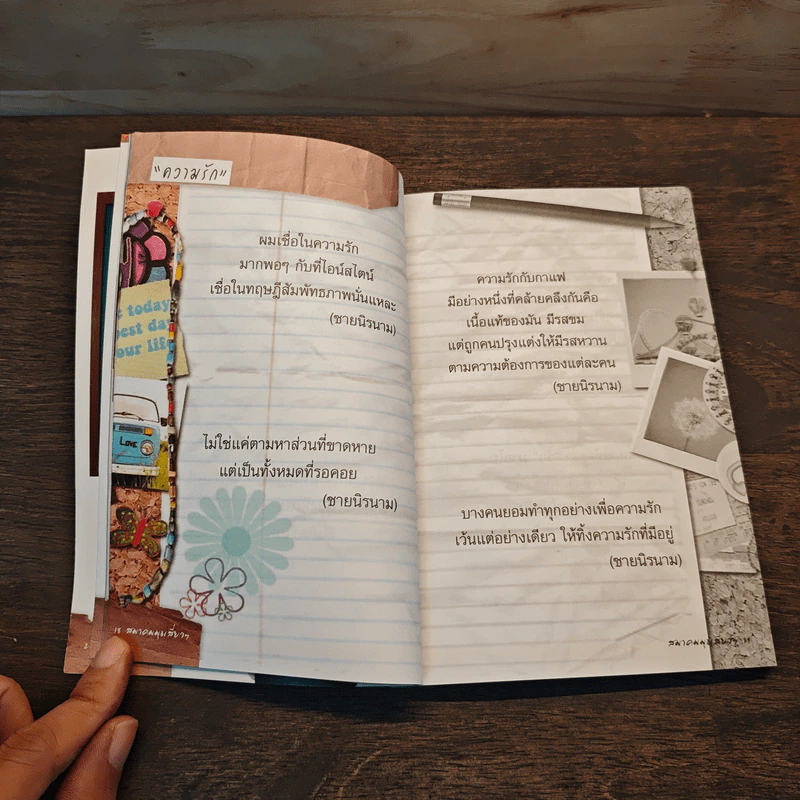 "ความรัก"
ผมเชื่อในความรัก
มากพอๆ กับที่ไอน์สไตน์
เชื่อในทฤษฎีสัมพัทธภาพนั่นแหละ
(ชายนิรนาม)
today
best day
your life
LOVE
ไม่ใช่แค่ตามหาส่วนที่ขาดหาย
แต่เป็นทั้งหมดที่รอคอย
(ชายนิรนาม)
สมาคมมุมเสี่ยวๆ
ความรักกับกาแฟ
มีอย่างหนึ่งที่คล้ายคลึงกันคือ
เนื้อแท้ของมัน มีรสขม
แต่ถูกคนปรุงแต่งให้มีรสหวาน
ตามความต้องการของแต่ละคน
(ชายนิรนาม)
บางคนยอมทำทุกอย่างเพื่อความรัก
เว้นแต่อย่างเดียว ให้ทิ้งความรักที่มีอยู่
(ชายนิรนาม)